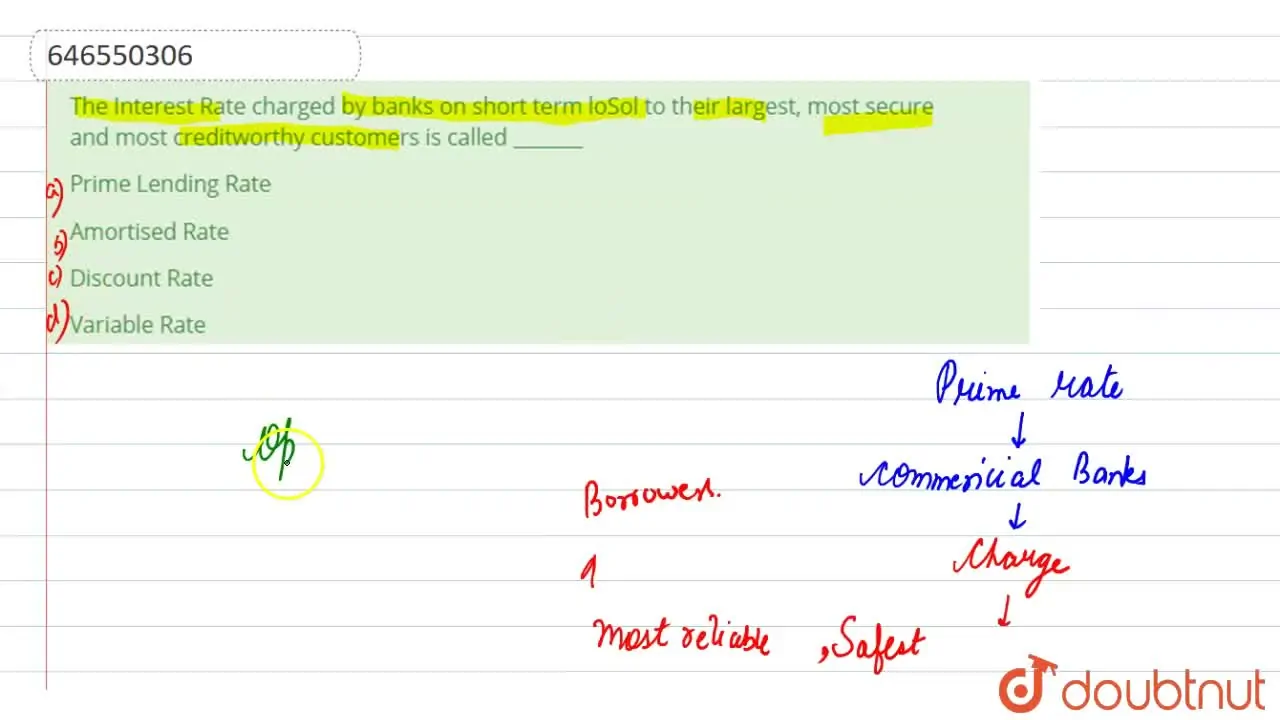 646550306
The Interest Rate charged by banks on short term loSol to their largest, most secure
and most creditworthy customers is called _______
a) Prime Lending Rate
b) Amortised Rate
c) Discount Rate
d) Variable Rate
Prime rate
↓
Commericial Banks
↓
Charge
↓
Most reliable , Safest
↑
Borrowers.
Op
doubtnut